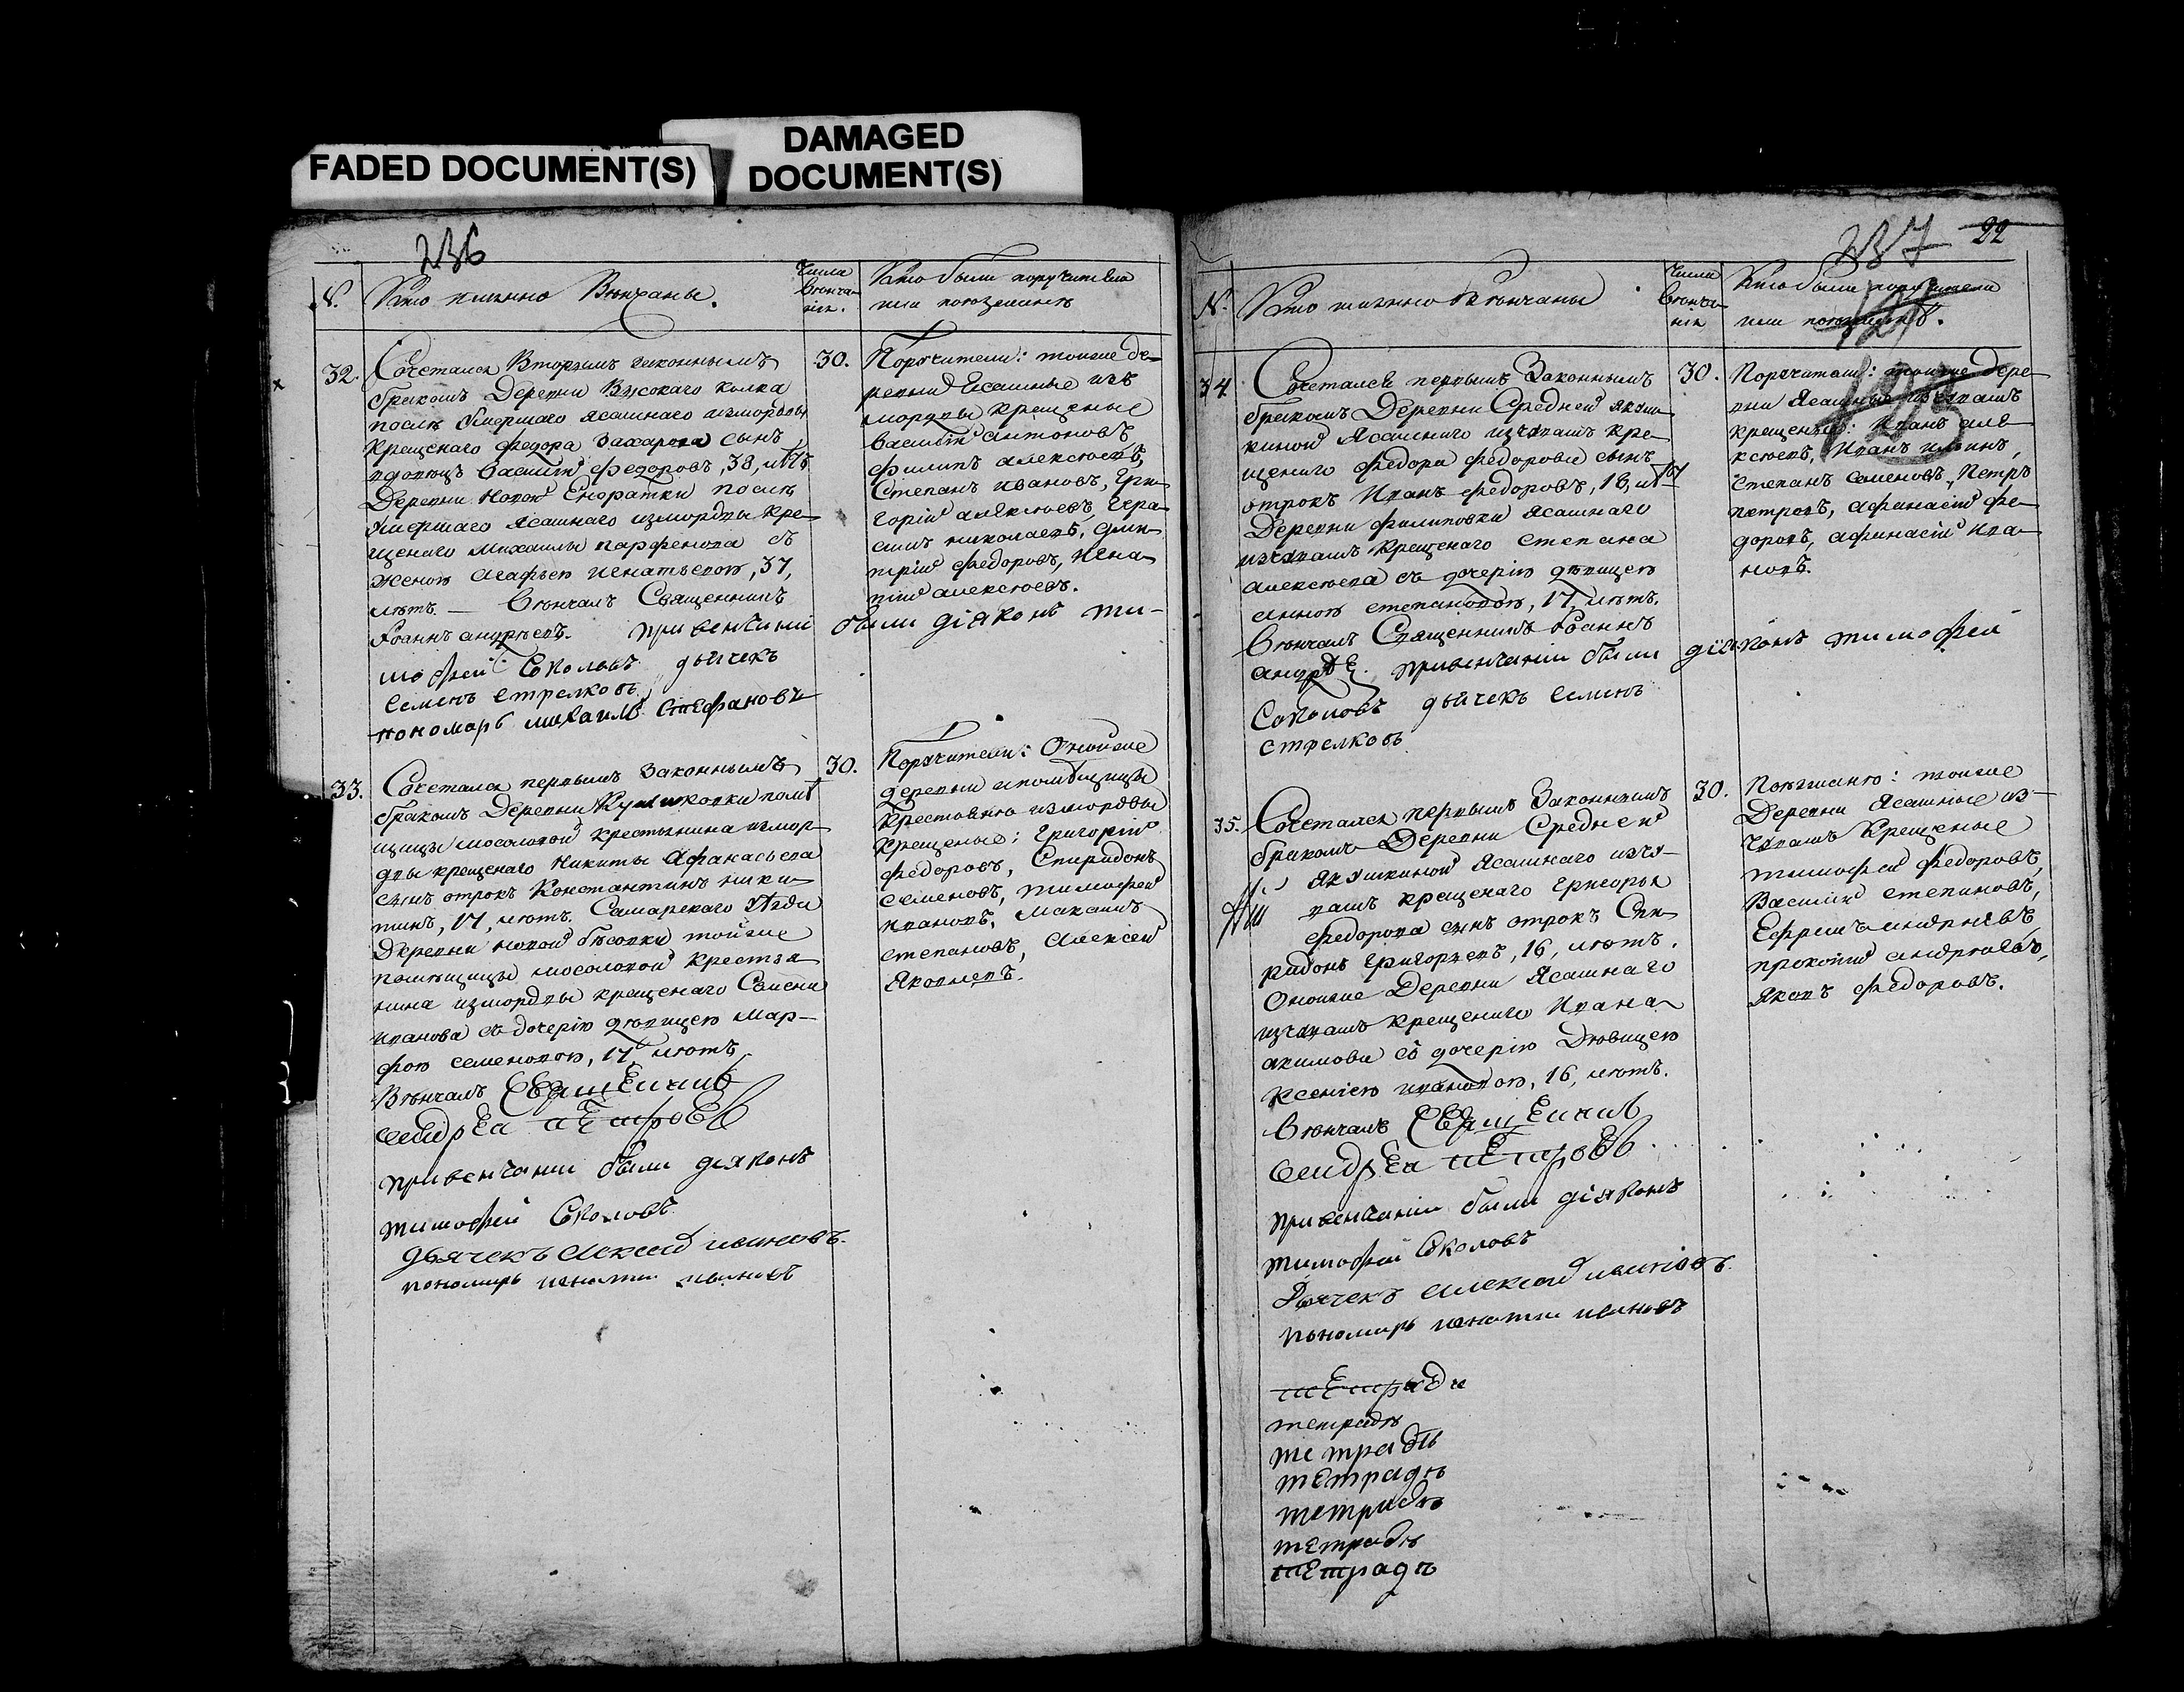 DAMAGED
DOCUMENT(S)
FADED DOCUMENT(S)
236
№.
Кто имянно Вѣнчаны.
Числа
Вѣнча-
нія.
Кто были поручители
или поезжанѣ
32.
Сочетался Вторымъ законнымъ
бракомъ Деревни Высокаго колка
послѣ Умершаго ясашнаго измордвы
крещенаго Федора Захарова сынъ
вдовецъ Василій Федоровъ, 38, лѣтъ
Деревни Новой послѣ
Умершаго ясашнаго измордвы кре-
щенаго Михаилы парфенова съ
женою Агафьею игнатьевою, 37,
лѣтъ — Вѣнчалъ Священникъ
Іоаннъ андрѣевъ. привенчании были діяконъ ти-
мофеи Соколовъ дьячекъ
Семенъ Стрелковъ
пономарь михаилъ Стефановъ
30.
Поручители: тоиже де-
ревни Ясашные изъ
мордвы крещеные
василій антоновъ
филипъ алексѣевъ,
Степанъ ивановъ, Гри-
горій алексѣевъ, Гера-
симъ николаевъ, дми-
трій федоровъ, игна-
тій алексѣевъ.
33.
Сочетался первымъ Законнымъ
бракомъ Деревни помѣ-
щицы мосоловой крестьянина измор-
двы крещенаго Никиты Афанасьева
сынъ отрокъ Константинъ ники-
тинъ, 17, лѣтъ. Самарскаго уѣзда
Деревни новой тойже
помѣщицы мосоловой крестья-
нина измордвы крещенаго Семена
иванова съ дочерію дѣвицею Мар-
фою семеновою, 17, лѣтъ
Вѣнчалъ СвящЕнникъ
андрЕи пЕтровъ
привенчании были діяконъ
тимофеи Соколовъ
дьячекъ Алексей ивановъ.
пономарь игнатии ивановъ
30.
Поручители: Оноиже
деревни ипомѣщицы
крестьяню измордвы
крещеные: Григорій
федоровъ, Спиридонъ
семеновъ, тимофей
ивановъ, Максимъ
степановъ, Алексей
Яковлевъ.
237 22
№.
Кто имянно вѣнчаны
Числа
вѣнча-
нія
Кто были поручители
или поезжанѣ.
34.
Сочетался первымъ Законнымъ
бракомъ Деревни Средней якуш-
киной Ясашнаго изчувашъ кре-
щенаго федора федорова сынъ
отрокъ Иванъ федоровъ, 18, лѣтъ
Деревни филиповки ясашнаго
изчувашъ крещенаго степана
алексѣева съ дочерію дѣвицею
анною степановою, 17, лѣтъ.
Вѣнчалъ Священникъ Іоаннъ
привенчании были діяконъ тимофеи
Соколовъ дьячекъ Семенъ
Стрелковъ
30.
Поручители: тоиже Дере-
вни Ясашные изчувашъ
крещеные: Иванъ але-
ксѣевъ, Иванъ ильинъ,
Степанъ Семеновъ, Петръ
петровъ, афанасій фе-
доровъ, афанасій ива-
новъ.
125
35.
Сочетался первымъ Законнымъ
бракомъ Деревни Средней
Якушкиной Ясашнаго изчу-
вашъ крещенаго Григорья
федорова сынъ отрокъ Спи-
ридонъ Григорьевъ, 16, лѣтъ.
Оноиже Деревни Ясашнаго
изчувашъ крещенаго Ивана
акимова съ дочерію Дѣвицею
Ксеніею ивановою, 16, лѣтъ.
Вѣнчалъ СвящЕнникъ
андрЕи пЕтровъ
привенчании были діяконъ
тимофеи Соколовъ
Дьячекъ алексей ивановъ.
пономарь игнатии ивановъ
30.
Поезжаню: тоиже
Деревни Ясашные из-
чувашъ Крещеные
тимофей федоровъ,
Василій степановъ,
Ефремъ андрѣевъ
прокопій андрѣевъ,
Яковъ федоровъ.
тЕтради
тетрадь
тетрадь
тЕтрадь
тетрадь
тЕтрадь
тЕтрадь